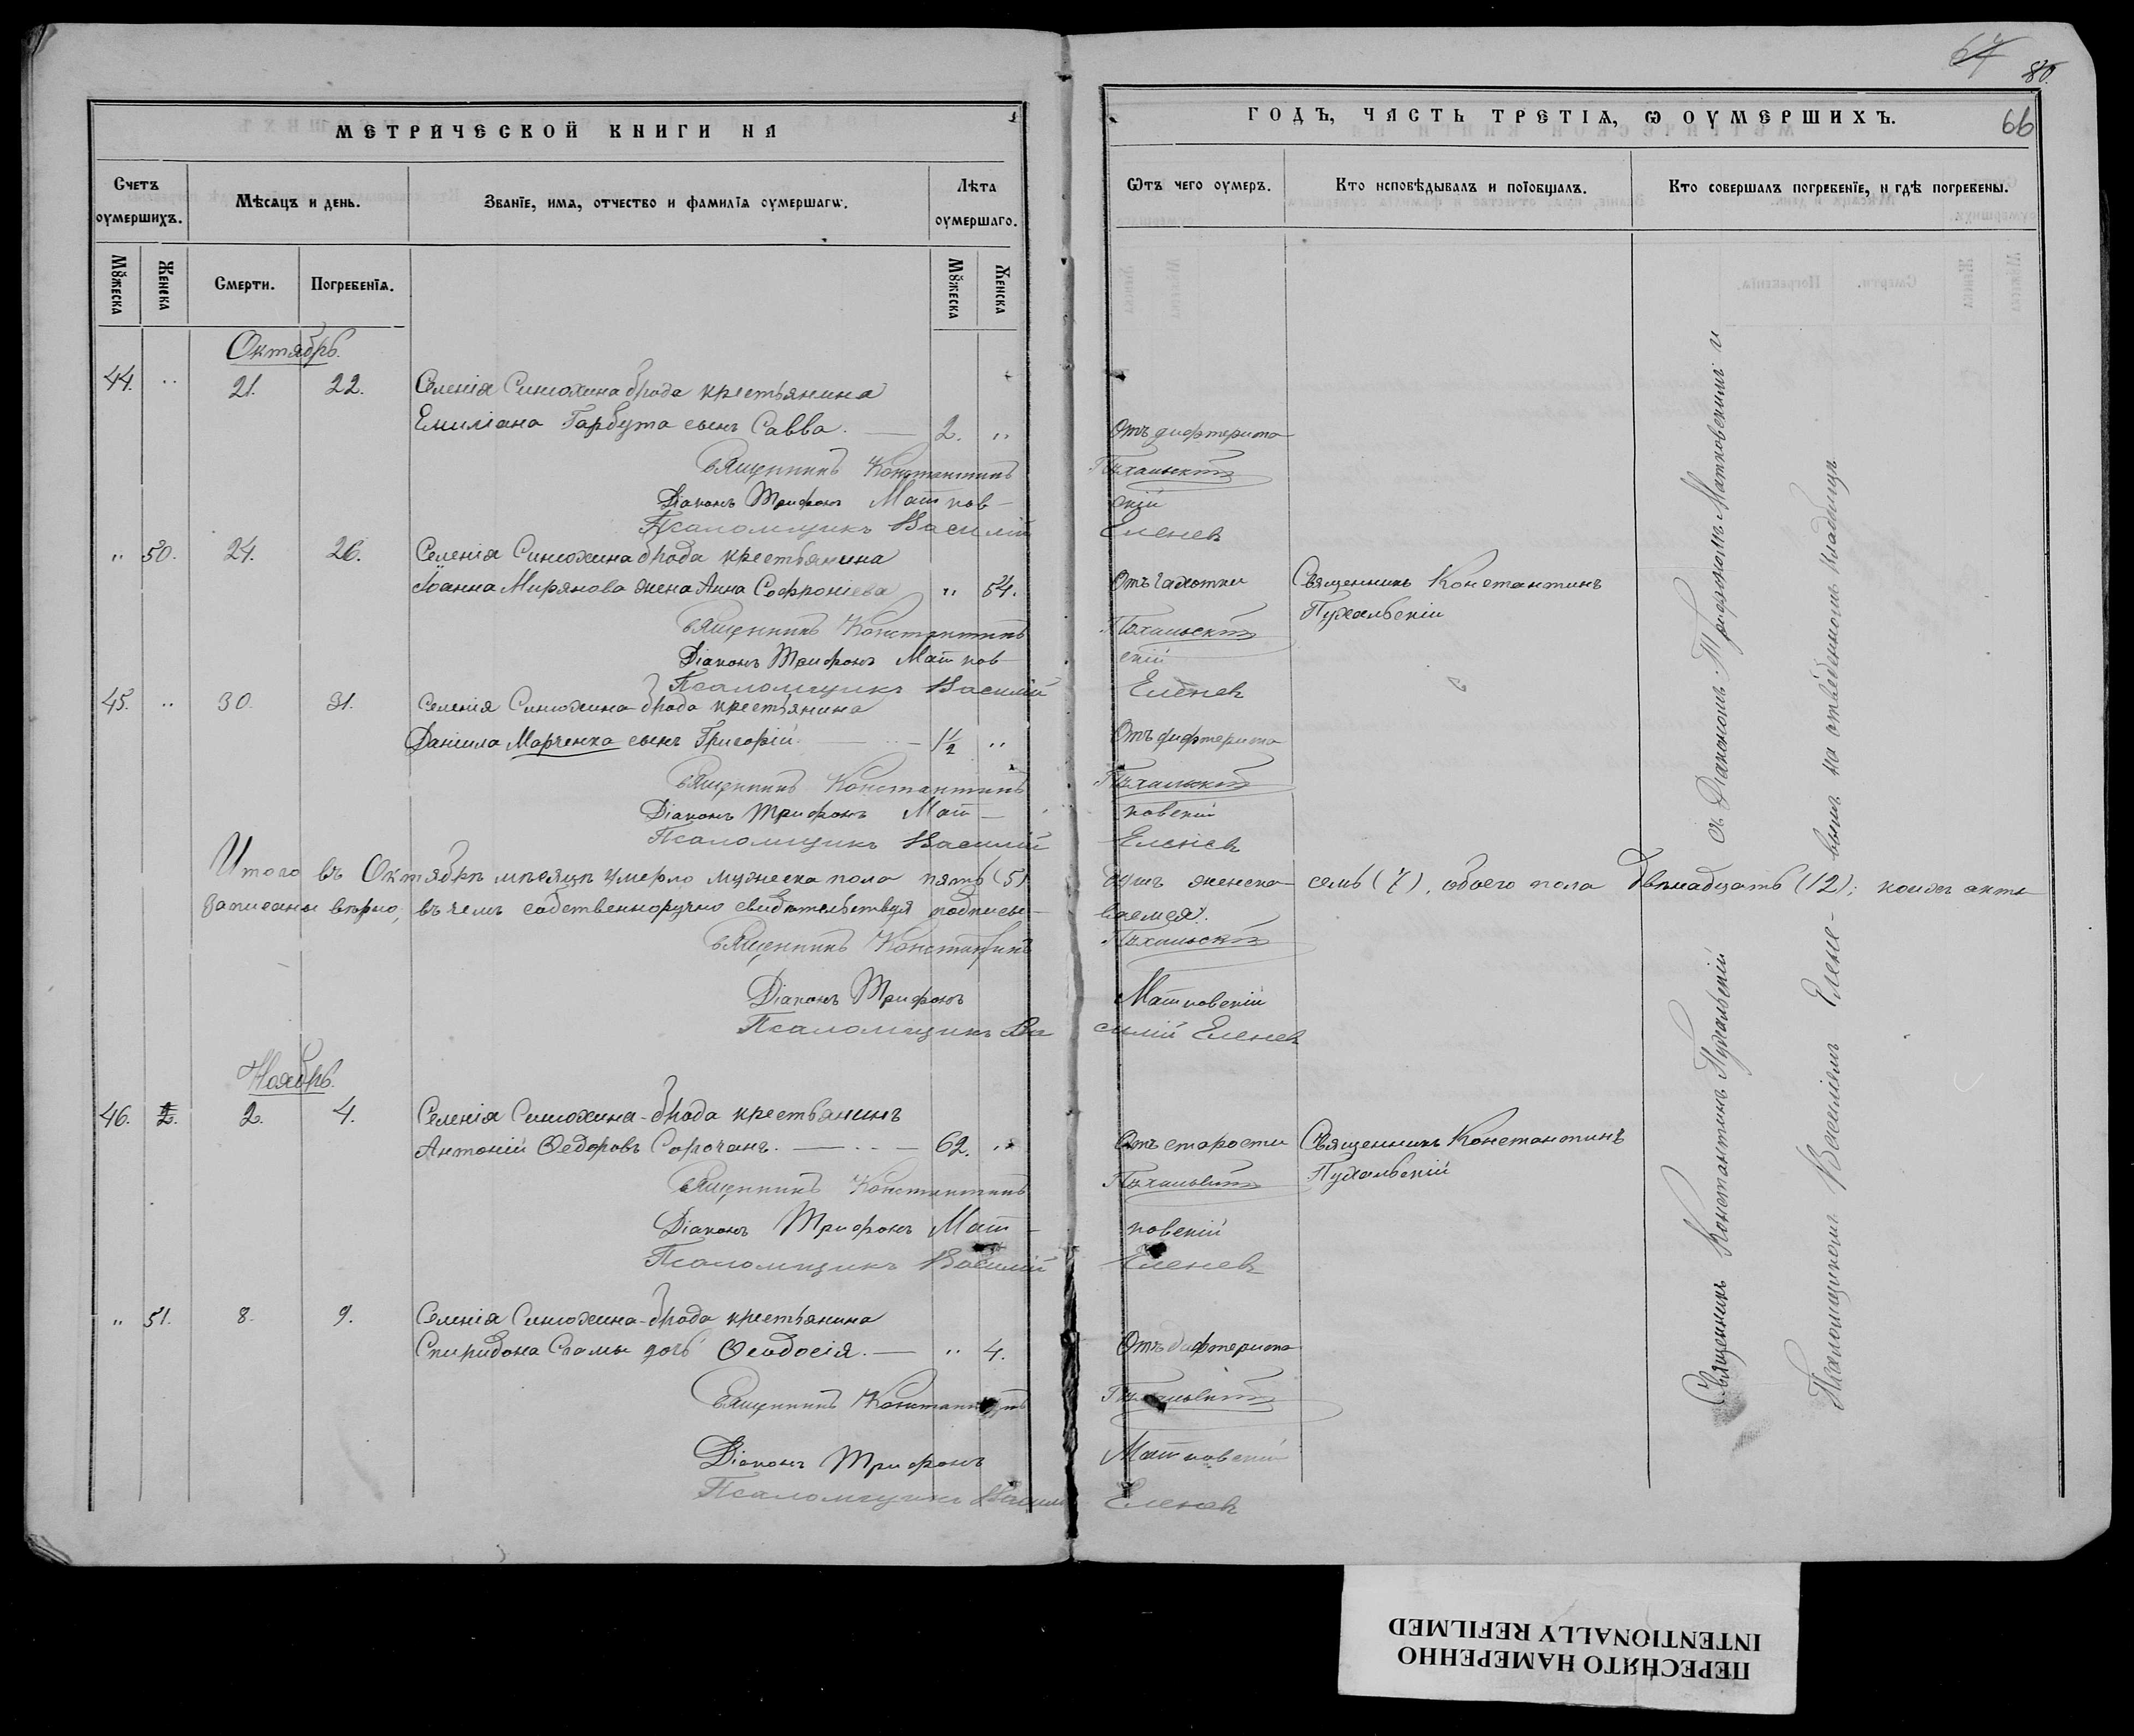 67
80.
66
МЕТРИЧЕСКОЙ КНИГИ НА
ГОДЪ, ЧАСТЬ ТРЕТІѦ, Ѡ ОУМЕРШИХЪ.
Счетъ оумершихъ.
Мѣсѧцъ и день.
Званїе, имѧ, отчество и фамилїѧ оумершагѡ.
Лѣта оумершаго.
Ѿтъ чего оумеръ.
Кто исповѣдывалъ и поїобщалъ.
Кто совершалъ погребенїе, и гдѣ погребены.
Мꙋжеска
Женска
Смерти.
Погребенїѧ.
Мꙋжеска
Женска
Октябрь.
44. " 21. 22. Селенія Синюхина брода крестьянина
Емиліана Гарбуза сынъ Савва. — 2. " Отъ дифтерита
Священникъ Константинъ Пухальскій
Діаконъ Трифонъ Матковскій
Псаломщикъ Василій Еленев
" 50. 24. 26. Селенія Синюхина брода крестьянина
Іоанна Мирянова жена Анна Софроніева " 54. Отъ чахотки Священникъ Константинъ
Пухальскій
Священникъ Константинъ Пухальскій
Діаконъ Трифонъ Матковскій
Псаломщикъ Василій Еленев
45. " 30. 31. Селенія Синюхина-брода крестьянина
Даніила Марченка сынъ Григорій. — 1½ " Отъ дифтерита
Священникъ Константинъ Пухальскій
Діаконъ Трифонъ Матковскій
Псаломщикъ Василій Еленев
Итого въ Октябрѣ мѣсяцѣ умерло мужеска пола пять (5) душъ женска семь (7), обоего пола двѣнадцать (12); коихъ акты
записаны вѣрно, въ чемъ собственноручно свидѣтельствуя подписываемся.
Священникъ Константинъ Пухальскій
Діаконъ Трифонъ Матковскій
Псаломщикъ Василій Еленев
Ноябрь.
46. 2. 2. 4. Селенія Синюхина-брода крестьянинъ
Антоній Ѳедоровъ Сорочанъ. — 62. " Отъ старости Священникъ Константинъ
Пухальскій
Священникъ Константинъ Пухальскій
Діаконъ Трифонъ Матковскій
Псаломщикъ Василій Еленев
" 51. 8. 9. Селенія Синюхина-брода крестьянина
Спиридона дочь Ѳеодосія. — " 4. Отъ дифтерита
Священникъ Константинъ Пухальскій
Діаконъ Трифонъ Матковскій
Псаломщикъ Василій Еленев
Священникъ Константинъ Пухальскій съ Діакономъ Трифономъ Матковскимъ и
Псаломщикомъ Василіемъ Елене-вымъ на отведенномъ кладбищѣ
ПЕРЕСНЯТО НАМЕРЕННО
INTENTIONALLY REFILMED